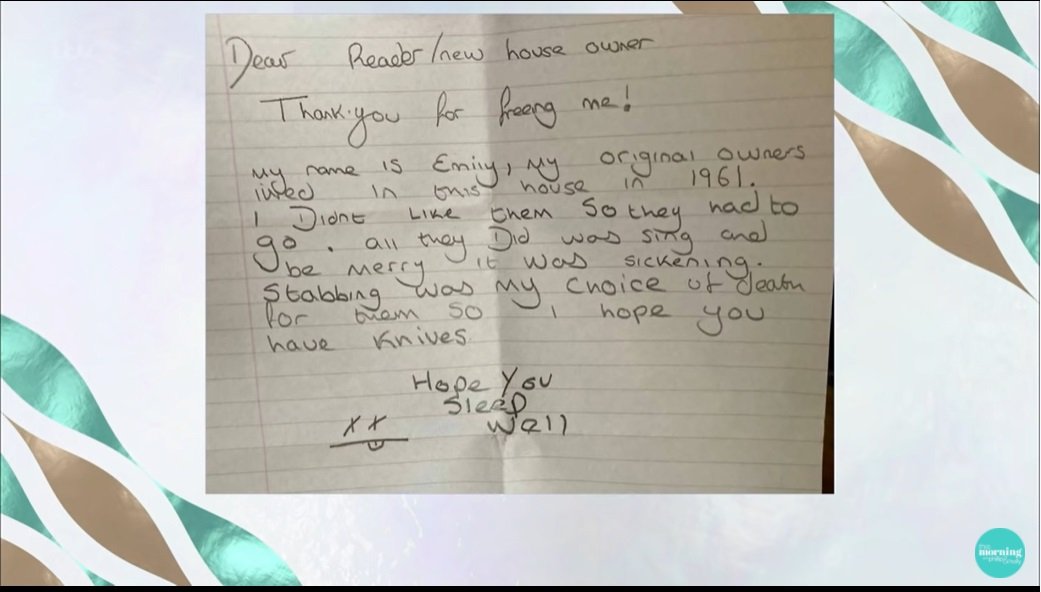 Dear Reader/new house owner
Thank you for freeing me!
My name is Emily, My original owners
lived in this house in 1961.
I Didnt Like them So they had to
go. all they Did was sing and
be merry it was sickening.
Stabbing was my choice of death
for them so I hope you
have Knives
Hope You
Sleep
Well
XX
this
morning